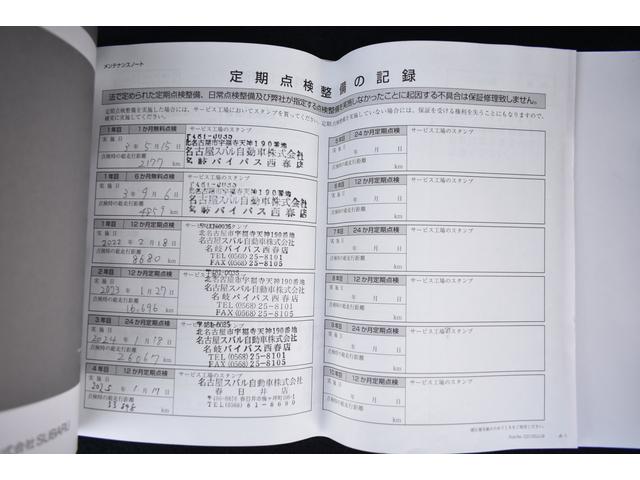 メンテナンスノート
定期点検整備の記録
法で定められた定期点検整備、日常点検整備及び弊社が指定する点検整備を実施しなかったことに起因する不具合は保証修理致しません。
定期点検整備を実施した場合には、サービス工場においてスタンプを貰ってください。定期点検整備を実施していない場合には、保証を受ける権利を失うこともなりますので、
確実に実施してください。
1年目 1か月無料点検 サービス工場のスタンプ
実施日 3年5月15日
北名古屋市宇福寺天神190番地
点検時の総走行距離
名古屋スバル自動車株式会社
2177 km
名岐バイパス西春店
1年目 6か月無料点検 サービス工場のスタンプ
〒481-0035
実施日 3年9月6日
北名古屋市宇福寺天神190番地
点検時の総走行距離
名古屋スバル自動車株式会社
4859 km
名岐バイパス西春店
1年目 12か月定期点検 サービス工場のスタンプ
実施日
北名古屋市宇福寺天神190番地
2022年2月18日
名古屋スバル自動車株式会社
点検時の総走行距離
名岐バイパス西春店
8680 km
TEL(0568)25-8101
FAX(0568)25-8105
2年目 12か月定期点検 サービス工場のスタンプ
〒481-0035
実施日
北名古屋市宇福寺天神190番地
2023年1月27日
名古屋スバル自動車株式会社
点検時の総走行距離
名岐バイパス西春店
16,696 km
TEL(0568)25-8101
FAX(0568)25-8105
3年目 24か月定期点検 サービス工場のスタンプ
実施日
北名古屋市宇福寺天神190番地
2024年1月18日
名古屋スバル自動車株式会社
点検時の総走行距離
名岐バイパス西春店
26067 km
TEL(0568)25-8101
FAX(0568)25-8105
4年目 12か月定期点検 サービス工場のスタンプ
実施日
名古屋スバル自動車株式会社
2025年1月17日
春日井店
点検時の総走行距離
km
5年目 24か月定期点検 サービス工場のスタンプ
実施日
年 月 日
点検時の総走行距離
km
6年目 12か月定期点検 サービス工場のスタンプ
実施日
年 月 日
点検時の総走行距離
km
7年目 24か月定期点検 サービス工場のスタンプ
実施日
年 月 日
点検時の総走行距離
km
8年目 12か月定期点検 サービス工場のスタンプ
実施日
年 月 日
点検時の総走行距離
km
9年目 24か月定期点検 サービス工場のスタンプ
実施日
年 月 日
点検時の総走行距離
km
10年目 12か月定期点検 サービス工場のスタンプ
実施日
年 月 日
点検時の総走行距離
km
式会社SUBARU